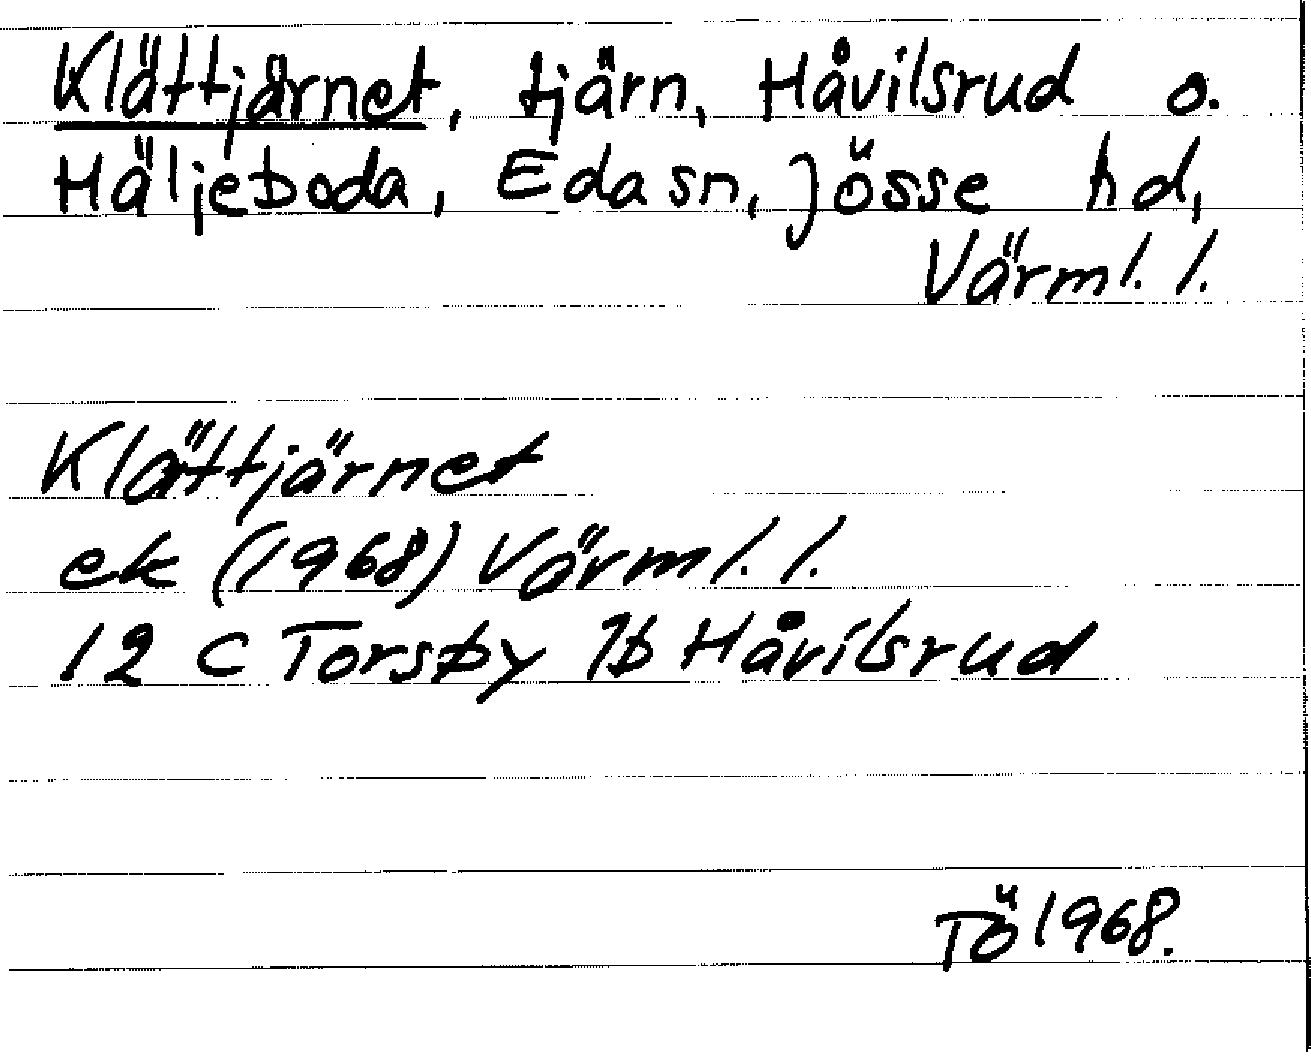 Klättjärnet, tjärn, Håvilsrud o.
Häljeboda, Eda sn, Jösse hd,
Värml. l.
Klättjärnet
ek (1968) Värml. l.
12 C Torsby 7b Håvilsrud
TÖ 1968.